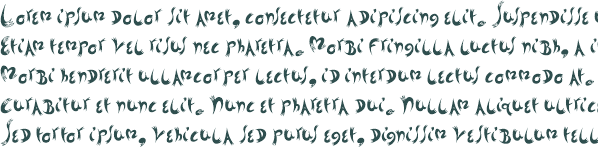 Lorem ipsum dolor sit amet, consectetur adipiscing elit. Suspendisse
Etiam tempor vel risus nec pharetra. Morbi fringilla luctus nibh, a i
Morbi hendrerit ullamcorper lectus, id interdum lectus commodo at.
Curabitur et nunc elit. Nunc et pharetra dui. Nullam aliquet ultric
Sed tortor ipsum, vehicula sed purus eget, dignissim vestibulum tell